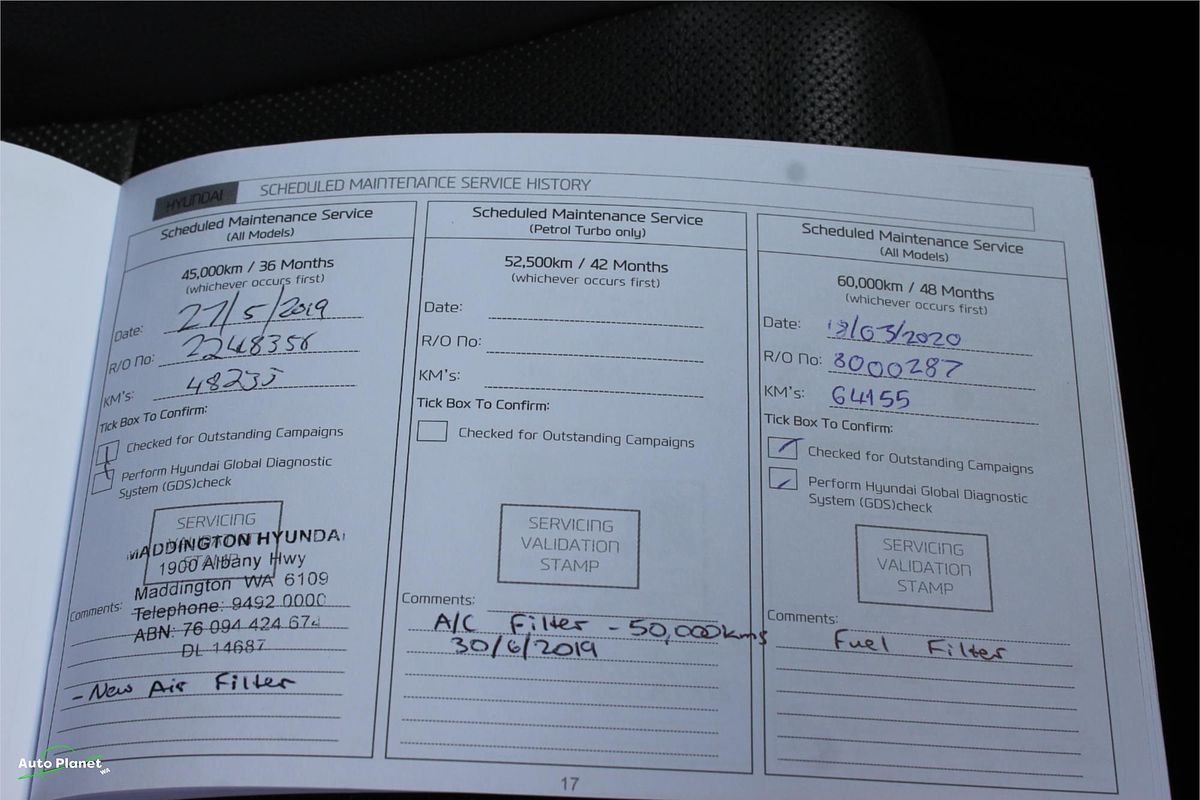 HYUNDAI
SCHEDULED MAINTENANCE SERVICE HISTORY
Scheduled Maintenance Service
(All Models)
45,000km / 36 Months
(whichever occurs first)
Date: 27/5/2019
R/O No: 2248356
KM's: 48235
Tick Box To Confirm:
Checked for Outstanding Campaigns
Perform Hyundai Global Diagnostic
System (GDS)check
SERVICING
VALIDATION
STAMP
MADDINGTON HYUNDAI
1900 Albany Hwy
Maddington WA 6109
Telephone: 9492 0000
ABN: 76 094 424 674
DL 14687
Comments:
- New Air Filter
Scheduled Maintenance Service
(Petrol Turbo only)
52,500km / 42 Months
(whichever occurs first)
Date:
R/O No:
KM's:
Tick Box To Confirm:
Checked for Outstanding Campaigns
SERVICING
VALIDATION
STAMP
Comments:
A/C Filter - 50,000kms
30/6/2019
Scheduled Maintenance Service
(All Models)
60,000km / 48 Months
(whichever occurs first)
Date: /03/2020
R/O No: 8000287
KM's: 64155
Tick Box To Confirm:
Checked for Outstanding Campaigns
Perform Hyundai Global Diagnostic
System (GDS)check
SERVICING
VALIDATION
STAMP
Comments:
Fuel Filter
17
Auto Planet
WA